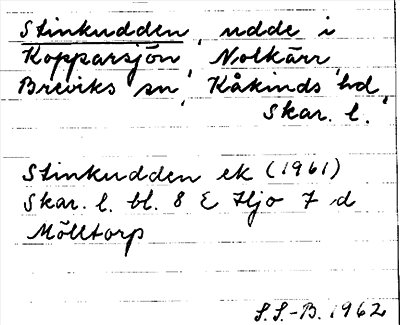 Stinkudden, udde i
Kopparsjön, Nolkärr,
Breviks sn, Kåkinds hd,
Skar. l.
Stinkudden ek (1961)
Skar. l. bl. 8 E Hjo 7 d
Mölltorp
S.S.-B. 1962